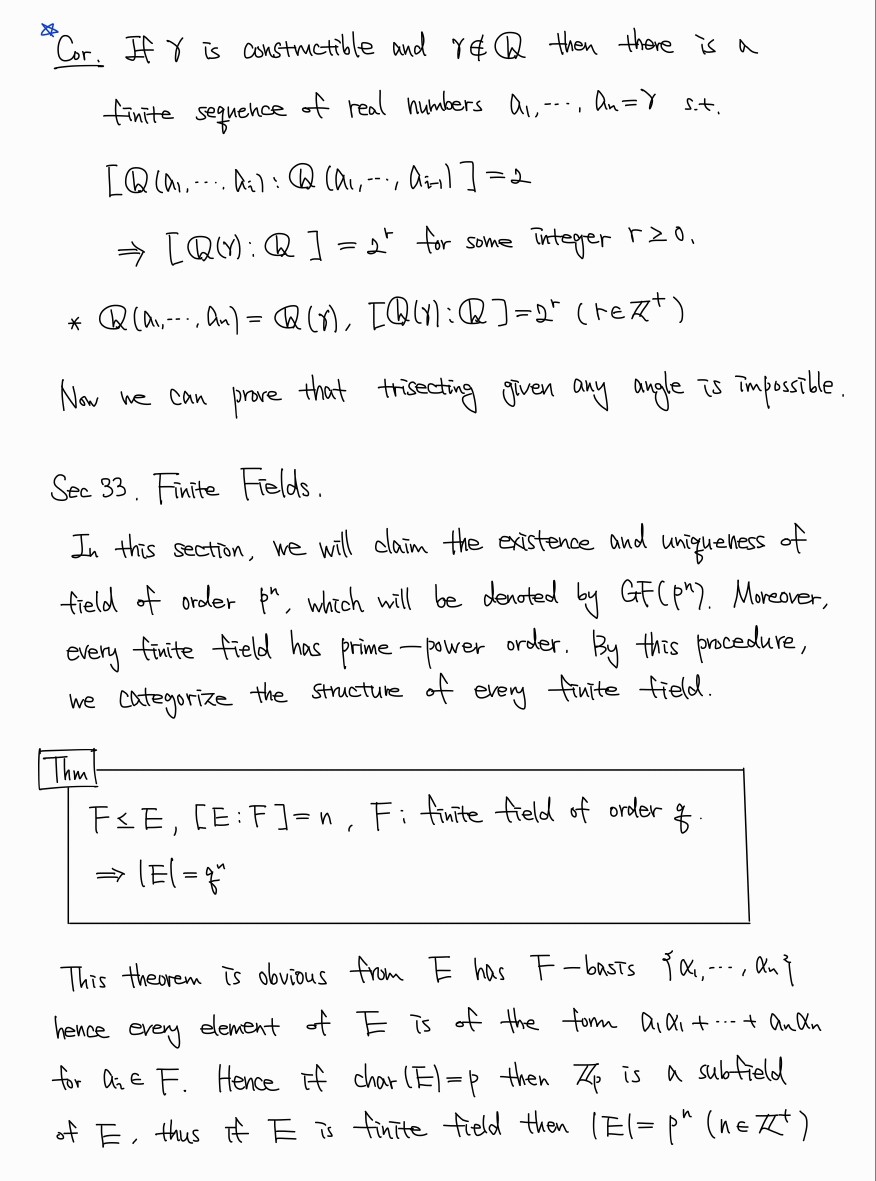 ☆ Cor. If γ is constructible and γ∉ℚ then there is a
finite sequence of real numbers a₁,⋯, aₙ=γ s.t.
[ℚ(a₁,⋯, aᵢ):ℚ(a₁,⋯, aᵢ₋₁)]=2
⇒ [ℚ(γ):ℚ] = 2ʳ for some integer r≥0.
* ℚ(a₁,⋯, aₙ)= ℚ(γ), [ℚ(γ):ℚ]=2ʳ (r∈ℤ⁺)
Now we can prove that trisecting given any angle is impossible.
Sec 33. Finite Fields.
In this section, we will claim the existence and uniqueness of
field of order pⁿ, which will be denoted by GF(pⁿ). Moreover,
every finite field has prime-power order. By this procedure,
we categorize the structure of every finite field.
Thm
F≤E, [E:F]=n, F: finite field of order q.
⇒ |E|=qⁿ
This theorem is obvious from E has F-basis {α₁,⋯, αₙ}
hence every element of E is of the form a₁α₁+⋯+aₙαₙ
for aᵢ∈F. Hence if char(E)=p then ℤₚ is a subfield
of E, thus if E is finite field then |E|= pⁿ (n∈ℤ⁺)